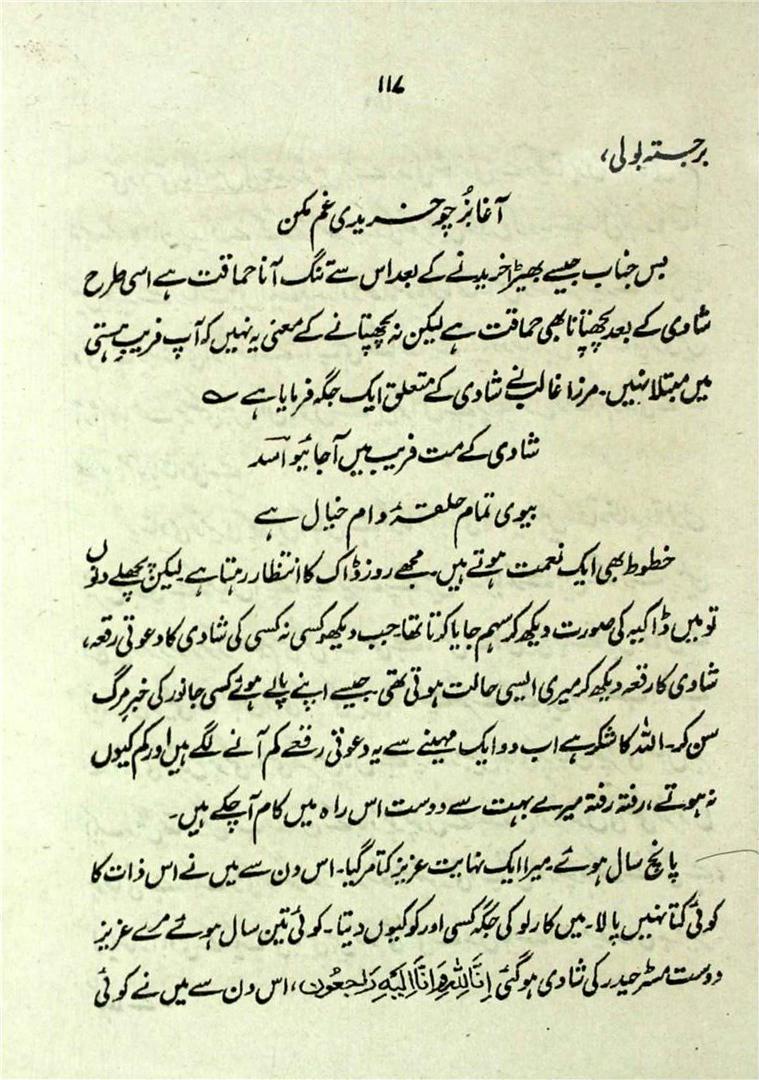 ۱۱۷
برجستہ بولی،
آغا بُز چو خریدی غم مکن
بس جناب جیسے بھیڑ خریدنے کے بعد اس سے تنگ آنا حماقت ہے اسی طرح
شادی کے بعد پچھتانا بھی حماقت ہے لیکن نہ پچھتانے کے معنی یہ نہیں کہ آپ فریبِ ہستی
میں مبتلا نہیں۔ مرزا غالب نے شادی کے متعلق ایک جگہ فرمایا ہے ؎
شادی کے مت فریب میں آجائیو اسدؔ
بیوی تمام حلقۂ دام خیال ہے
خطوط بھی ایک نعمت ہوتے ہیں۔ مجھے روز ڈاک کا انتظار رہتا ہے۔ لیکن پچھلے دنوں
تو میں ڈاکیہ کی صورت دیکھ کر سہم جایا کرتا تھا۔ جب دیکھو کسی نہ کسی کی شادی کا دعوتی رقعہ،
شادی کا رقعہ دیکھ کر میری ایسی حالت ہوتی تھی۔ جیسے اپنے پالے ہوئے کسی جانور کی خبرِ مرگ
سن کر۔ اللہ کا شکر ہے اب دو ایک مہینے سے یہ دعوتی رقعے کم آنے لگے ہیں اور کم کیوں
نہ ہوتے، رفتہ رفتہ میرے بہت سے دوست اس راہ میں کام آچکے ہیں۔
پانچ سال ہوئے۔ میرا ایک نہایت عزیز کتا مر گیا۔ اس دن سے میں نے اس ذات کا
کوئی کتا نہیں پالا۔ میں کارلو کی جگہ کسی اور کو کیوں دیتا۔ کوئی تین سال ہوئے مرے عزیز
دوست مسٹر حیدر کی شادی ہوگئی اِنَّا لِلّٰہِ وَاِنَّا اِلَیْہِ رَاجِعُون، اس دن سے میں نے کوئی